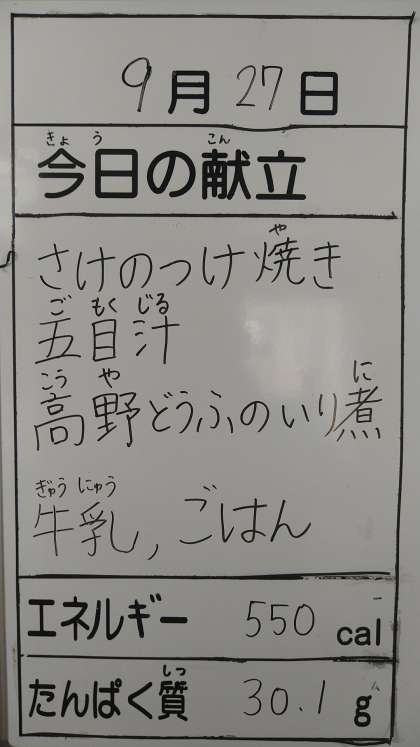 9月27日
きょう こん
今日の献立
や
さけのつけ焼き
ご もく じる
五目汁
こう や に
高野どうふのいり煮
ぎゅう にゅう
牛乳, ごはん
エネルギー 550 cal
しつ
たんぱく質 30.1 g